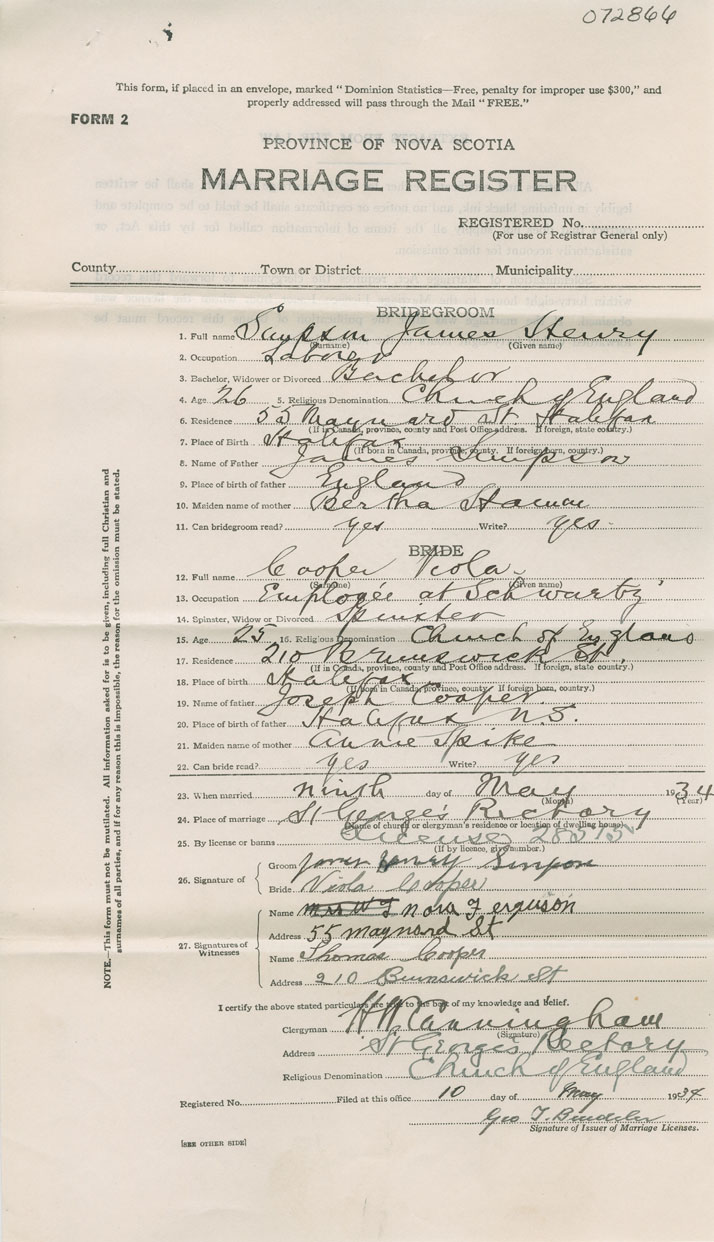 072866
This form, if placed in an envelope, marked "Dominion Statistics—Free, penalty for improper use $300," and
properly addressed will pass through the Mail "FREE."
FORM 2
PROVINCE OF NOVA SCOTIA
MARRIAGE REGISTER
REGISTERED No.
(For use of Registrar General only)
County Town or District Municipality
BRIDEGROOM
1. Full name Simpson James Henry
(Surname) (Given name)
2. Occupation Laborer
3. Bachelor, Widower or Divorced Bachelor
4. Age 26 5. Religious Denomination Church of England
6. Residence 55 Maynard St. Halifax
(If in Canada, province, county and Post Office address. If foreign, state country.)
7. Place of Birth Halifax
(If born in Canada, province, county. If foreign born, country.)
8. Name of Father James Simpson
9. Place of birth of father England
10. Maiden name of mother Bertha
11. Can bridegroom read? yes Write? yes.
BRIDE
12. Full name Cooper Viola
(Surname) (Given name)
13. Occupation Employée at Schwartz'
14. Spinster, Widow or Divorced Spinster
15. Age 25 16. Religious Denomination Church of England
17. Residence 210 Brunswick St.
(If in Canada, province, county and Post Office address. If foreign, state country.)
18. Place of birth Halifax
(If born in Canada, province, county. If foreign born, country.)
19. Name of father Joseph Cooper
20. Place of birth of father Halifax N.S.
21. Maiden name of mother Annie Spike
22. Can bride read? yes Write? yes
23. When married ninth day of May 1934
(Month) (Year)
24. Place of marriage St George's Rectory
(Name of church or clergyman's residence or location of dwelling house)
25. By license or banns License
(If by licence, give number.)
26. Signature of
Groom James Henry Simpson
Bride Viola Cooper
27. Signatures of Witnesses
Name Nora Ferguson
Address 55 maynard St
Name Thomas Cooper
Address 210 Brunswick St
I certify the above stated particulars are true to the best of my knowledge and belief.
Clergyman H W Cunningham
(Signature)
Address St George's Rectory
Religious Denomination Church of England
Registered No. Filed at this office 10 day of May 1934
Geo T.
Signature of Issuer of Marriage Licenses.
[SEE OTHER SIDE]
NOTE.—This form must not be mutilated. All information asked for is to be given, including full Christian and
surnames of all parties, and if for any reason this is impossible, the reason for the omission must be stated.